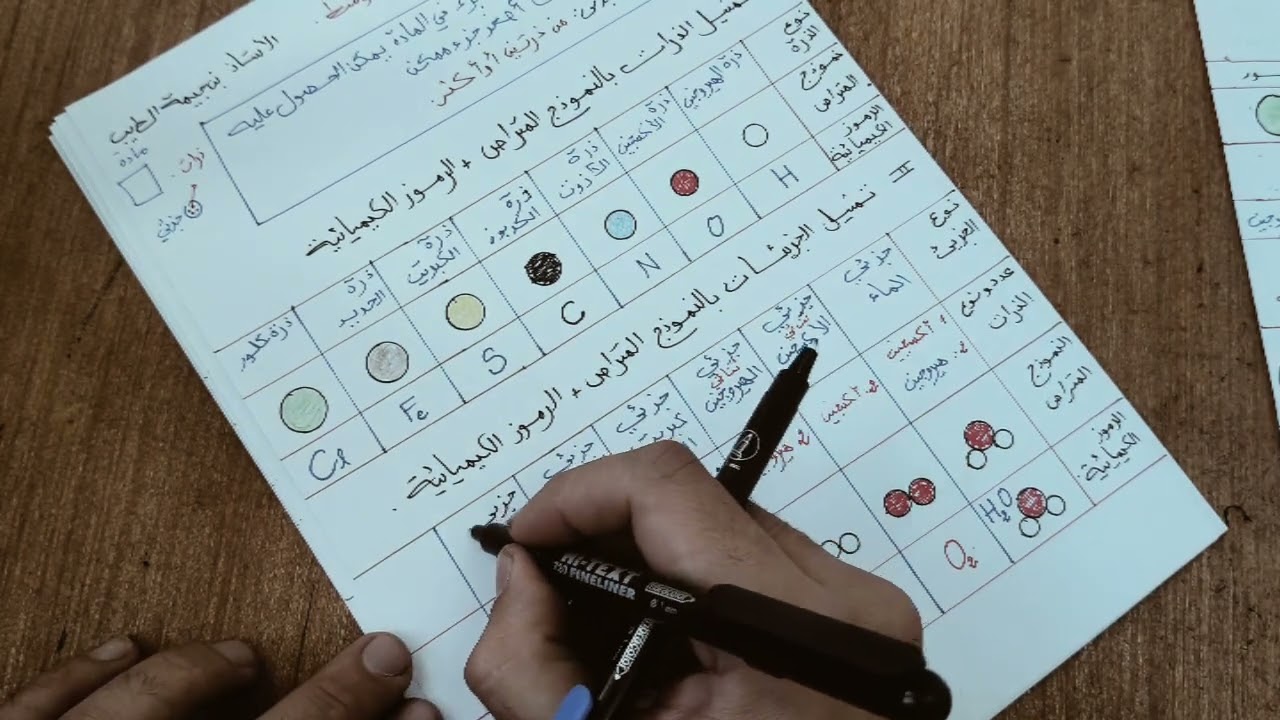 الأستاذ بسيمة الطيب
مادة
ذرات
جزئي
جزء في المادة يمكن الحصول عليه
أصغر جزء ممكن
من ذرتين أو أكثر.
تمثيل الذرات بالنموذج المتراص + الرموز الكيميائية
نوع الذرة
ذرة الهيدروجين
ذرة الأكسجين
ذرة الآزوت
ذرة الكربون
ذرة الكبريت
ذرة الحديد
ذرة كلور
نموذج المتراص
الرموز الكيميائية
H
O
N
C
S
Fe
Cl
II تمثيل الجزيئات بالنموذج المتراص + الرموز الكيميائية
نوع الجزيئ
جزئي الماء
جزئي ثنائي الأكسجين
جزئي ثنائي الهيدروجين
جزئي
جزئي
عدد ونوع الذرات
1 أكسجين
2 هيدروجين
2 أكسجين
2
النموذج المتراص
الرموز الكيميائية
H₂O
O₂
HI-TEXT
750 FINELINER